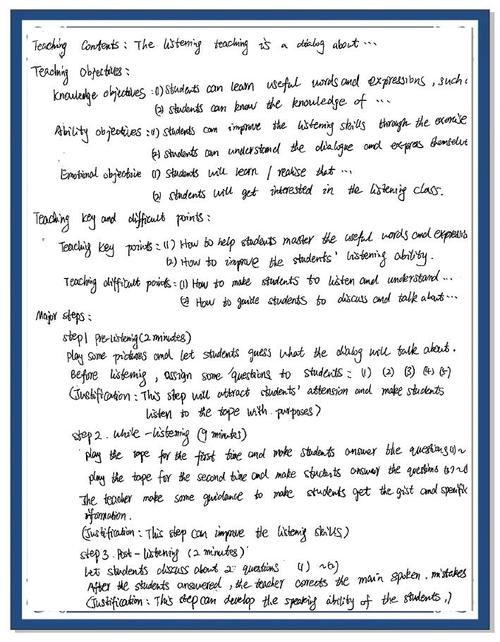 Teaching Contents: The listening teaching is a dialog about ...
Teaching Objectives:
Knowledge objectives: (1) Students can learn useful words and expressions, such
(2) students can know the knowledge of ...
Ability objectives: (1) students can improve the listening skills through the exercise
(2) students can understand the dialogue and express themselves
Emotional objective (1) Students will learn / realise that ...
(2) students will get interested in the listening class.
Teaching key and difficult points:
Teaching key points: (1) How to help students master the useful words and express
(2) How to improve the students' listening ability.
Teaching difficult points: (1) How to make students to listen and understand ...
(2) How to guide students to discuss and talk about ...
Major steps:
step1 Pre-listening (2 minutes)
Play some pictures and let students guess what the dialog will talk about.
Before listening, assign some questions to students: (1) (2) (3) (4) (5)
(Justification: This step will attract students' attension and make students
listen to the tape with purposes)
step 2. while-listening (9 minutes)
play the tape for the first time and make students answer the questions (1) ~
play the tape for the second time and make students answer the questions (3) ~
The teacher make some guidance to make students get the gist and specific
information.
(Justification: This step can improve the listening skills)
step 3. Post-listening (2 minutes)
Let students discuss about 2 questions (1) ~ (2)
After the students answered, the teacher corrects the main spoken mistakes
(Justification: This step can develop the speaking ability of the students.)